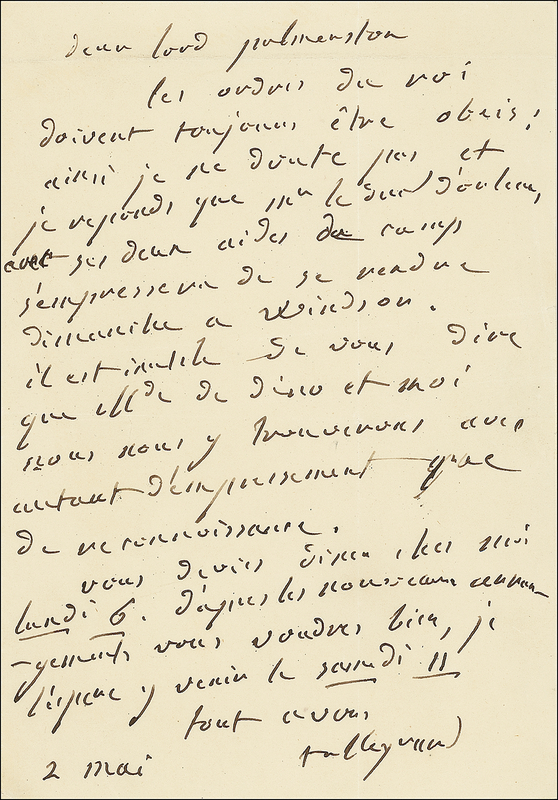 dear lord palmerston
les ordres du roi
doivent toujours être obeis;
ainsi je ne doute pas et
je reponds que Mr le duc d'orleans,
avec ses deux aides de camp
s'empressera de se rendre
dimanche a Windsor.
il est inutile de vous dire
que Mde de dino et moi
nous nous y trouverons avec
autant d'empressement que
de reconnoissance.
vous deviez diner chez moi
lundi 6. d'apres les nouveaux arran-
-gements vous voudrez bien, je
l'espere y venir le samedi 11
tout a vous
talleyrand
2 mai